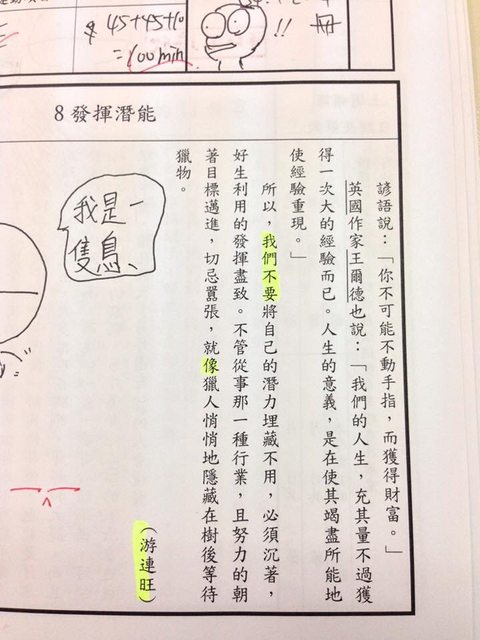 $ 45+45+10
=100min
!!
8發揮潛能
諺語說：「你不可能不動手指，而獲得財富。」
英國作家王爾德也說：「我們的人生，充其量不過獲
得一次大的經驗而已。人生的意義，是在使其竭盡所能地
使經驗重現。」
所以，我們不要將自己的潛力埋藏不用，必須沉著，
好生利用的發揮盡致。不管從事那一種行業，且努力的朝
著目標邁進，切忌囂張，就像獵人悄悄地隱藏在樹後等待
獵物。
（游連旺）
我是一
隻鳥、